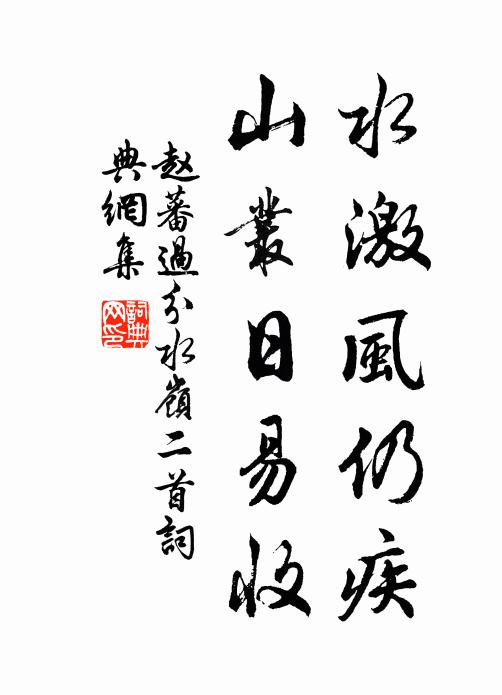 水激風仍疾
山叢日易收
赵蕃過分水嶺二首詞
典網集
詞典網印